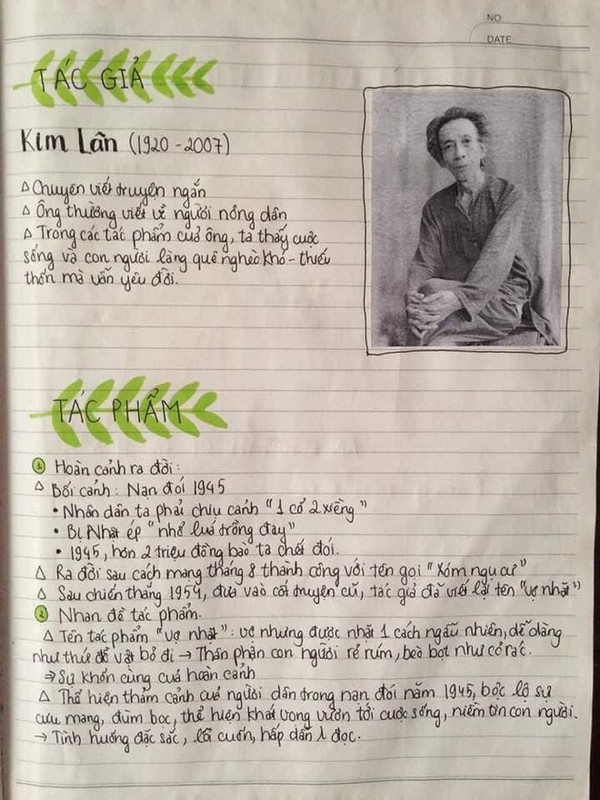 NO.
DATE
TÁC GIẢ
Kim Lân (1920 - 2007)
△ Chuyên viết truyện ngắn
△ Ông thường viết về người nông dân
△ Trong các tác phẩm của ông, ta thấy cuộc
sống và con người làng quê nghèo khó - thiếu
thốn mà vẫn yêu đời.
TÁC PHẨM
1 Hoàn cảnh ra đời:
△ Bối cảnh: Nạn đói 1945
• Nhân dân ta phải chịu cảnh "1 cổ 2 xiềng"
• Bị Nhật ép "nhổ lúa trồng đay"
• 1945, hơn 2 triệu đồng bào ta chết đói.
△ Ra đời sau cách mạng tháng 8 thành công với tên gọi "Xóm ngụ cư"
△ Sau chiến thắng 1954, dựa vào cốt truyện cũ, tác giả đã viết lại tên "vợ nhặt"
2 Nhan đề tác phẩm.
△ Tên tác phẩm "vợ nhặt": vợ nhưng được nhặt 1 cách ngẫu nhiên, dễ dàng
như thứ đồ vật bỏ đi → Thân phận con người rẻ rúm, bèo bọt như cỏ rác.
⇒ Sự khốn cùng của hoàn cảnh
△ Thể hiện thảm cảnh của người dân trong nạn đói năm 1945, bộc lộ sự
cưu mang, đùm bọc, thể hiện khát vọng vươn tới cuộc sống, niềm tin con người.
→ Tình huống đặc sắc, lôi cuốn, hấp dẫn đọc.